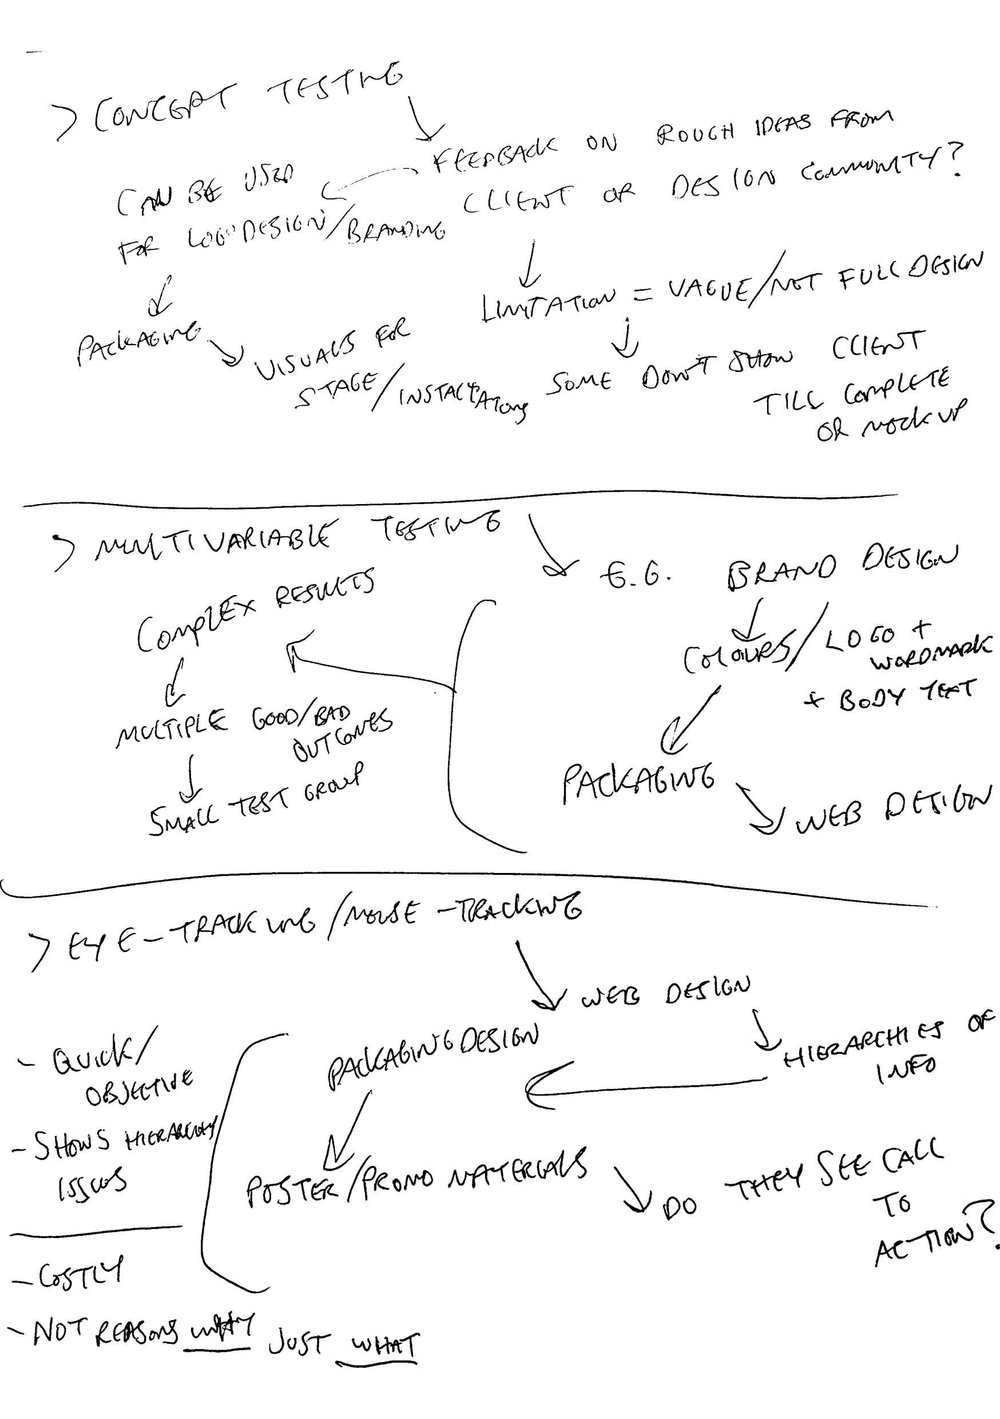 > CONCEPT TESTING
FEEDBACK ON ROUGH IDEAS FROM
CLIENT OR DESIGN COMMUNITY?
CAN BE USED
FOR LOGO DESIGN/BRANDING
PACKAGING
VISUALS FOR
STAGE/INSTALLATIONS
LIMITATION = VAGUE/NOT FULL DESIGN
SOME DON'T SHOW CLIENT
TILL COMPLETE
OR MOCKUP
> MULTIVARIABLE TESTING
E.G. BRAND DESIGN
COLOURS/LOGO +
WORDMARK
+ BODY TEXT
PACKAGING
WEB DESIGN
COMPLEX RESULTS
MULTIPLE GOOD/BAD
OUTCOMES
SMALL TEST GROUP
> EYE-TRACKING/MOUSE-TRACKING
WEB DESIGN
HIERARCHIES OF
INFO
PACKAGING DESIGN
POSTER/PROMO MATERIALS
DO THEY SEE CALL
TO
ACTION?
- QUICK/
OBJECTIVE
- SHOWS HIERARCHY
ISSUES
- COSTLY
- NOT REASONS WHY JUST WHAT